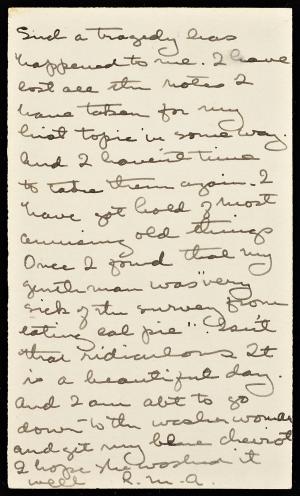 Such a tragedy has
happened to me. I have
lost all the notes I
have taken for my
hist topic in some way.
And I haven't time
to take them again. I
have got hold of most
amusing old things
Once I found that my
gentleman was "very
sick of the survey from
eating eal pie". Isn't
that ridiculous It
is a beautiful day.
And I am abt to go
down to the washer woman
and get my blue cheviot
I hope she washed it
well R.M.A.